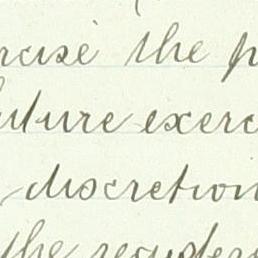 rcise the p
uture exerc
discretion
the